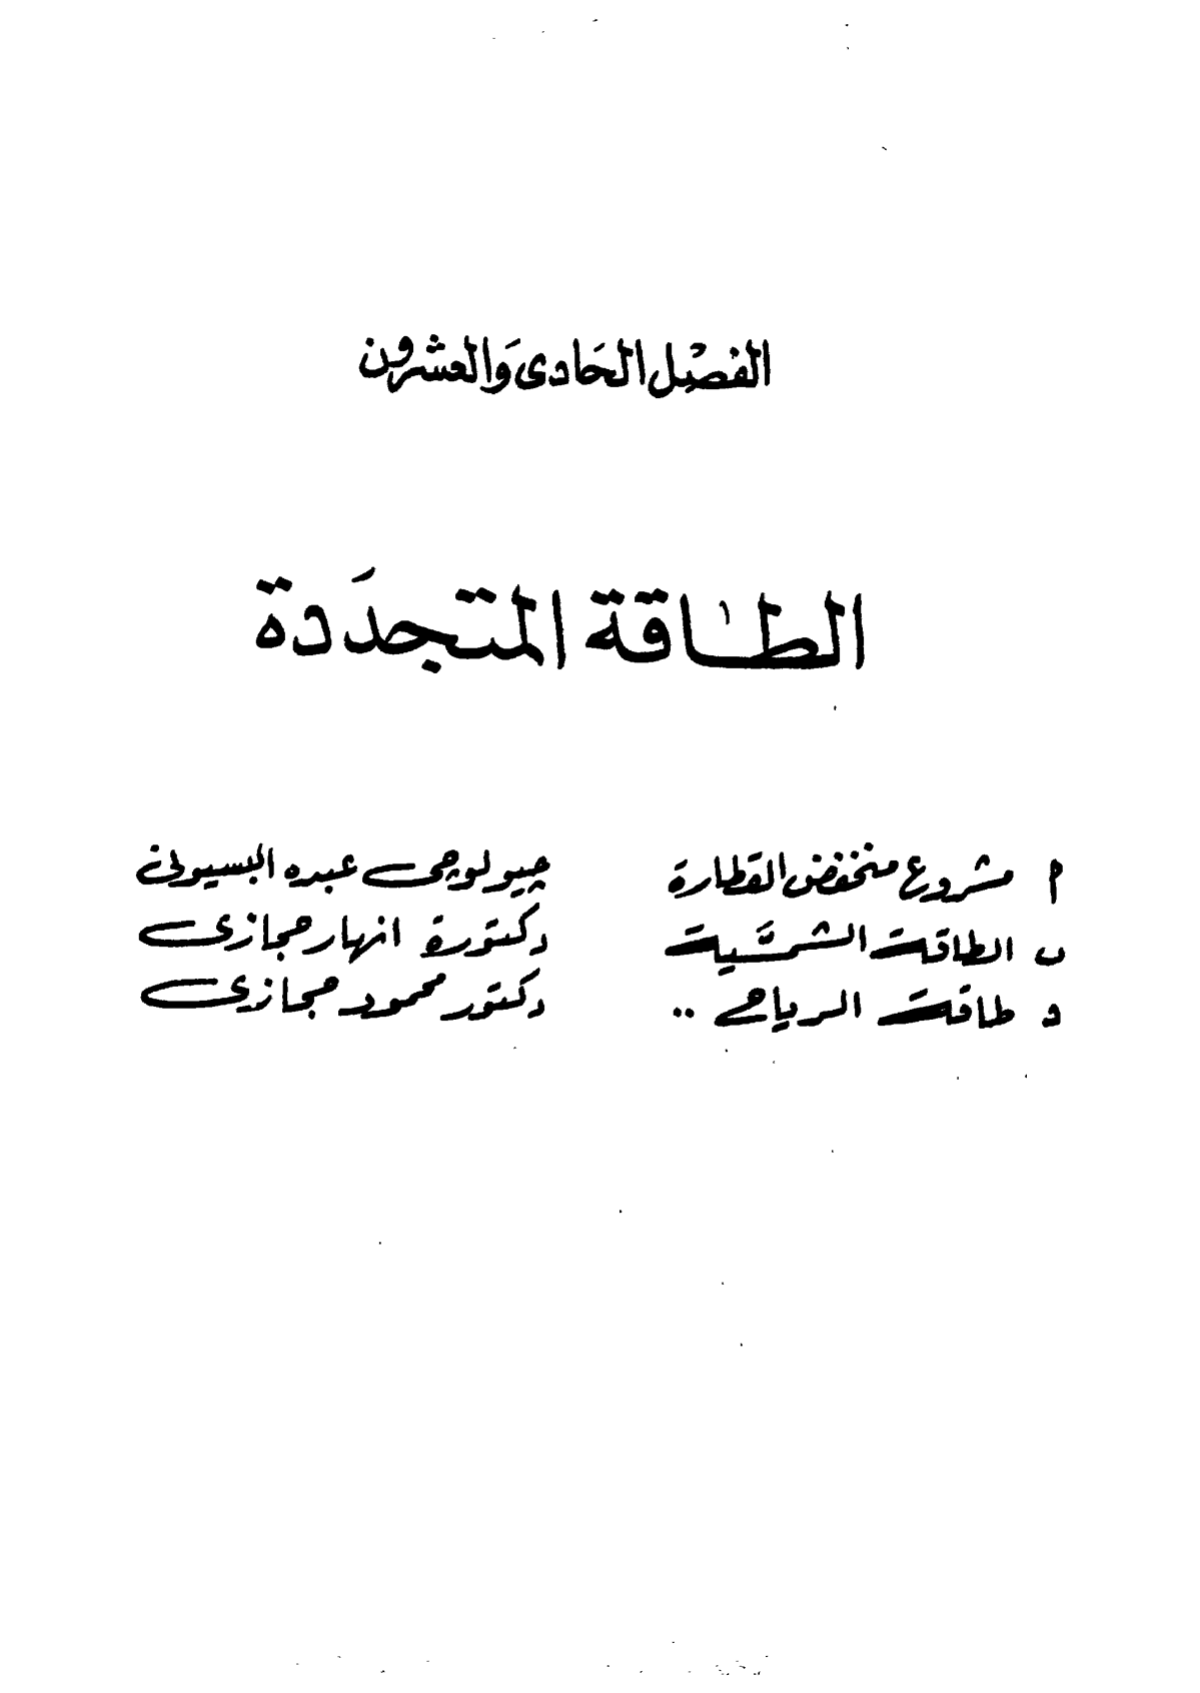 الفصل الحادى والعشرون
الطاقة المتجددة
أ مشروع منخفض القطارة جيولوجى عبده البسيونى
ب الطاقة الشمسية دكتورة انهار حجازى
د طاقة الرياح .. دكتور محمود حجازى